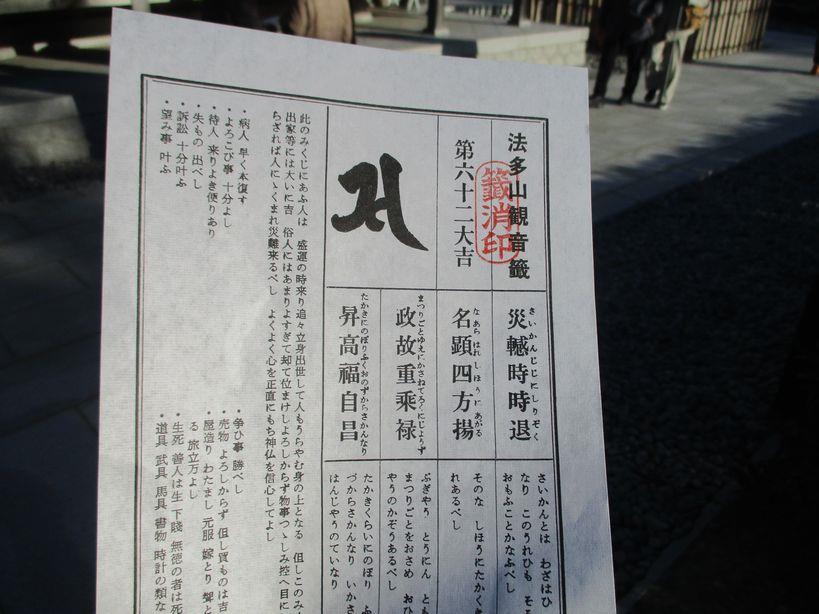 法多山観音籤
籤消印
第六十二大吉
災轗時時退
さいかんじじにしりぞく
名顕四方揚
なあらはれしほうにあがる
政故重乗禄
まつりごとゆえにかさねてろくにじょうず
昇高福自昌
たかきにのぼりふくおのずからさかんなり
さいかんとは わざはひ
なり このうれひも そ
おもふことかなふべし
そのな しほうにたかく
れあるべし
ぶぎやう とうにん とも
まつりごとをおさめ おひ
やうのかぞうあるべし
たかきくらいにのぼり ふ
づからさかんなり いかさ
はんじやうのていなり
此のみくじにあふ人は 盛運の時来り追々立身出世して人もうらやむ身の上となる 但しこのみ
出家等には大いに吉 俗人にはあまりよすぎて却て位まけしよろしからず物事つゝしみ控へ目に
らざれば人にゝくまれ災難来るべし よくよく心を正直にもち神仏を信心してよし
・病人 早く本復す
・よろこび事 十分よし
・待人 来りよき便りあり
・失もの 出べし
・訴訟 十分叶ふ
・望み事 叶ふ
・争ひ事 勝べし
・売物 よろしからず 但し買ものは吉
・屋造り わたまし 元服 嫁とり 聟と
る 旅立万よし
・生死 善人は生 下賤 無徳の者は死
・道具 武具 馬具 書物 時計の類な